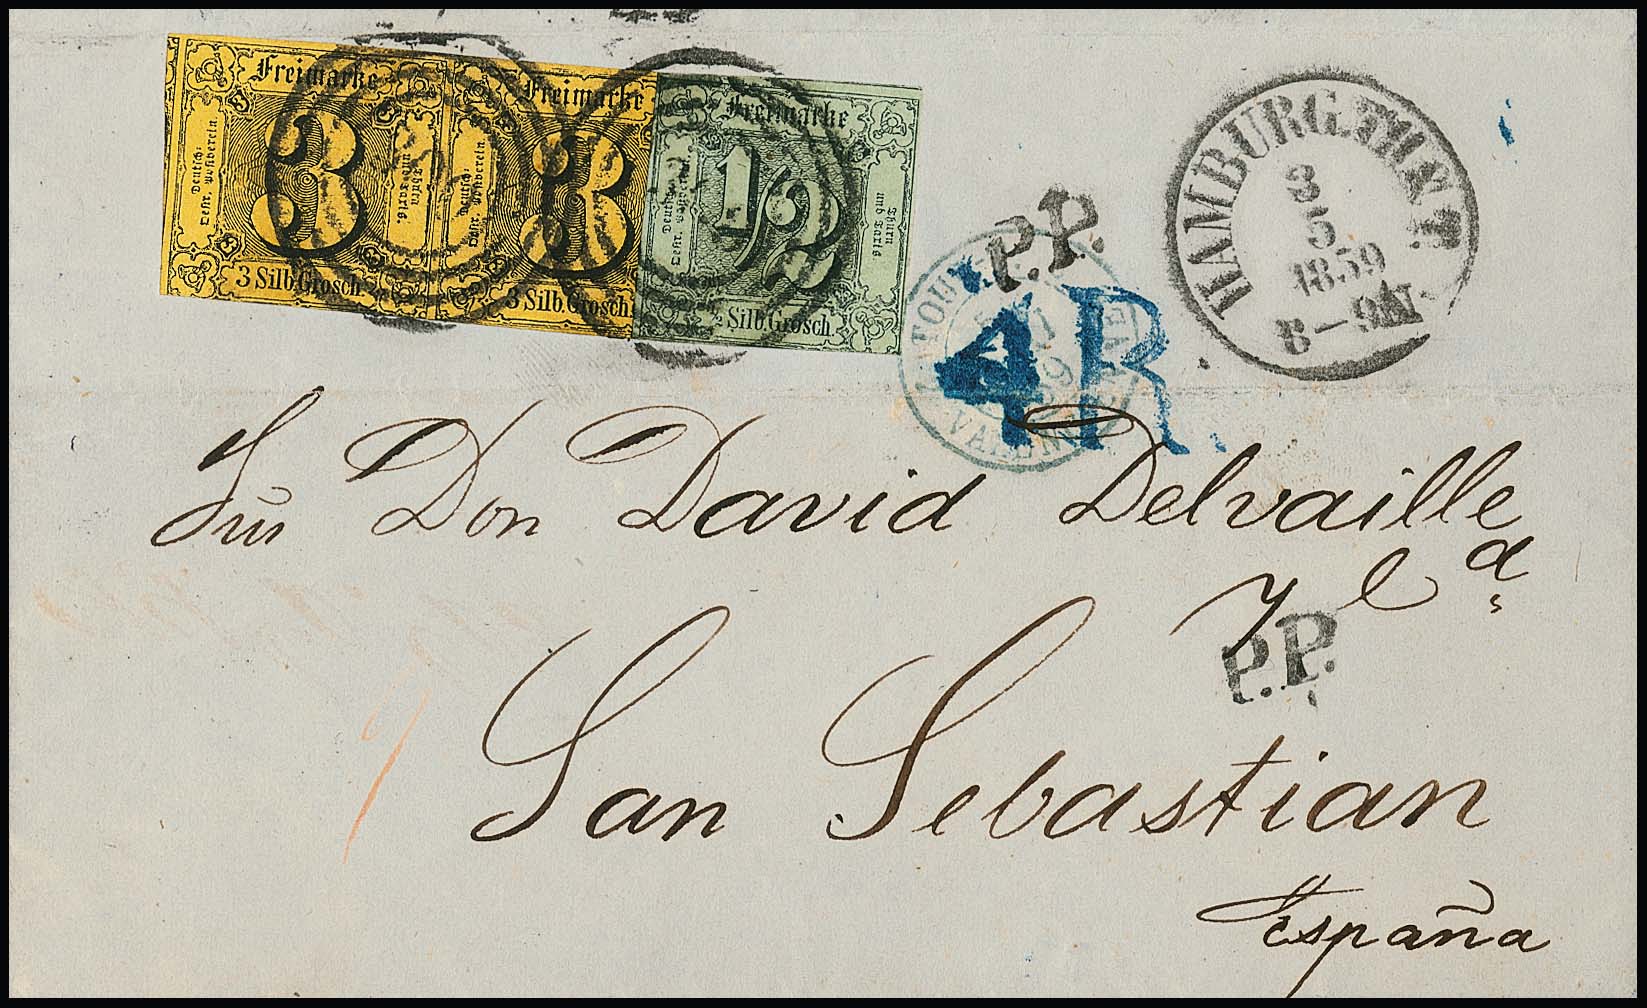 Freimarke
Deutsch-
Östr. Postverein.
3
Thurn
und Taxis.
3 Silb. Grosch.
Freimarke
Deutsch-
Östr. Postverein.
3
3 Silb. Grosch.
Freimarke
Deutsch-
Östr. Postverein.
1/2
Thurn
und Taxis
½ Silb. Grosch.
P.P.
4R
HAMBURG.TH.&T.
3
5
1859
8—9M
Don David Delvaille
y Cª
P.P.
San Sebastian
España